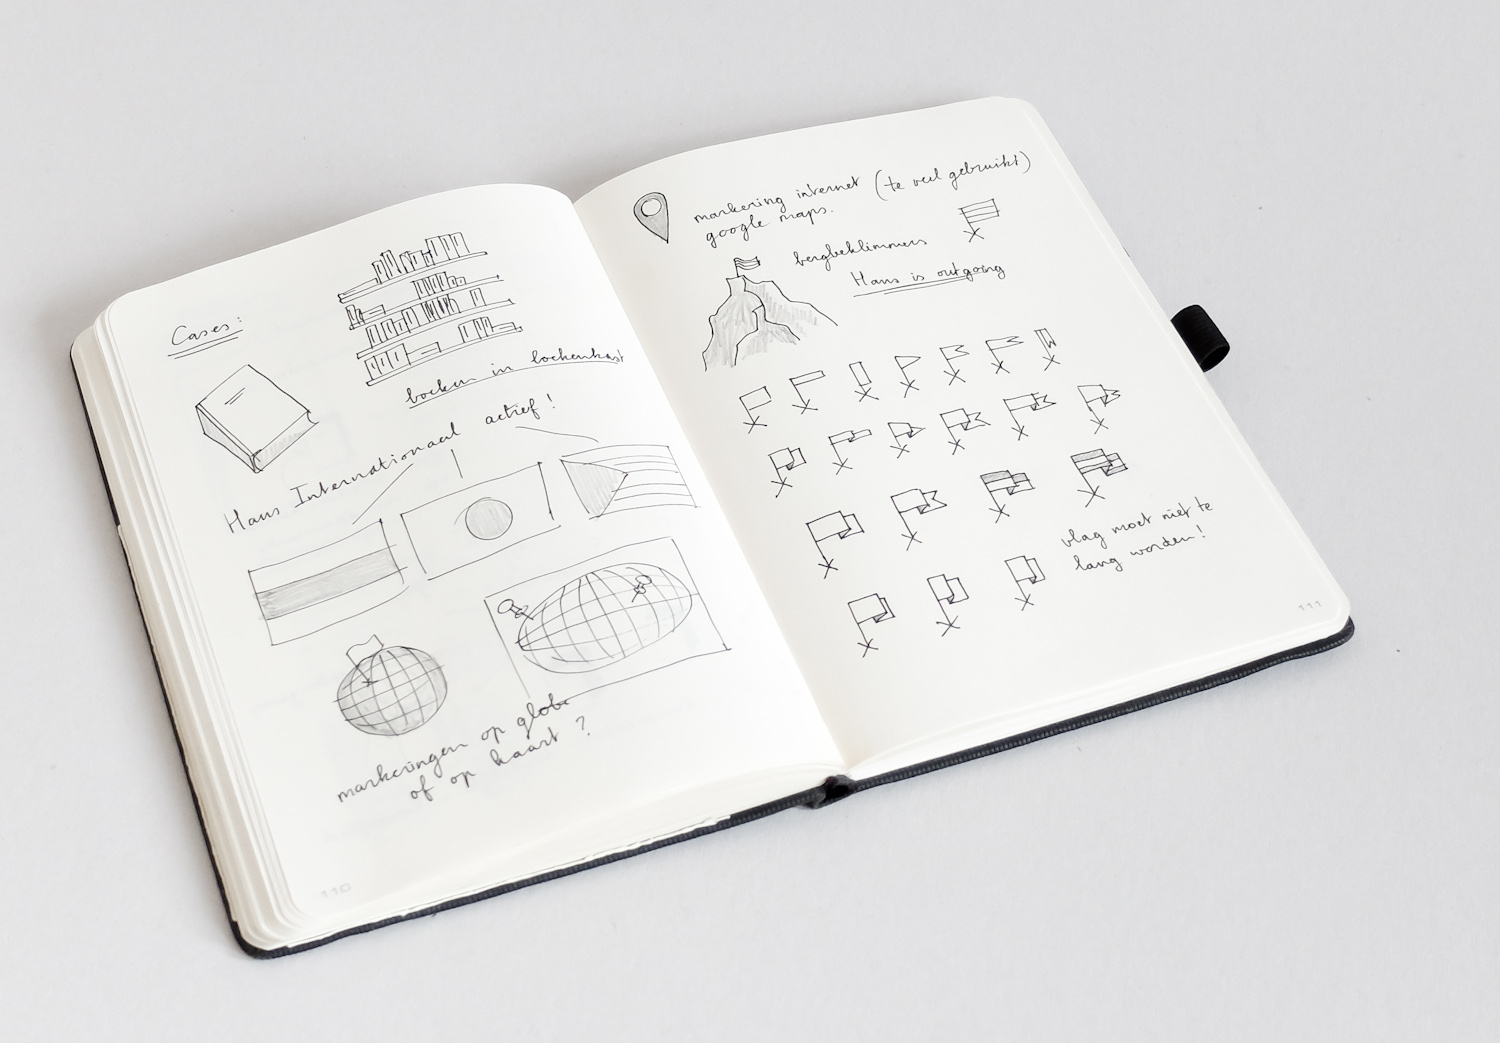 Cases:
boeken in boekenkast
Hans Internationaal actief!
markeringen op globe
of op kaart ?
110
markering internet (te veel gebruikt)
google maps.
bergbeklimmers
Hans is outgoing
vlag moet niet te
lang worden!
111